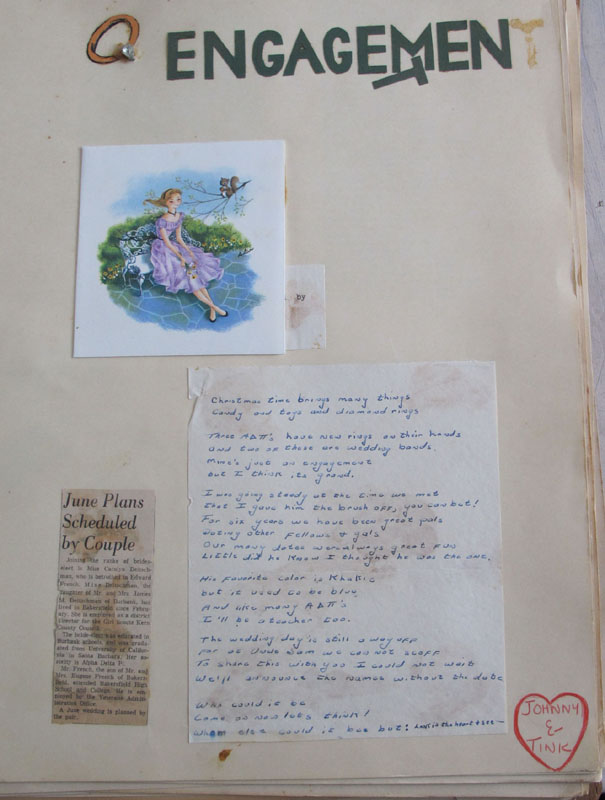 ENGAGEMENT
by
Christmas time brings many things
Candy and toys and diamond rings
Three ΑΔΠ's have new rings on their hands
and two of these are wedding bands.
Mine's just an engagement
but I think its grand.
I was going steady at the time we met
that I gave him the brush off, you can bet!
For six years we have been great pals
dating other fellows & gals
Our many dates were always great fun
Little did he know I thought he was the one.
His favorite color is Khakie
but it used to be blue
And like many ΑΔΠ's
I'll be a teacher too.
The wedding day is still a way off
for at June Bam we can not scoff
To share this with you I could not wait
We'll announce the names without the date
Who could it be
Come on now lets think!
Who else could it bee but: look in the heart & see—
June Plans
Scheduled
by Couple
Joining the ranks of brides-
elect is Miss Carolyn
man, who is betrothed to Edward
French. Miss
daughter of Mr. and Mrs. James
M. of Burbank, has
lived in Bakersfield since Febru-
ary. She is employed as a district
director for the Girl Scouts Kern
County Council.
The bride-elect was educated in
Burbank schools and was gradu-
ated from University of Califor-
nia in Santa Barbara. Her so-
rority is Alpha Delta Pi.
Mr. French, the son of Mr. and
Mrs. Eugene French of Bakers-
field, attended Bakersfield High
School and College. He is em-
ployed by the Veterans Adminis-
tration Office.
A June wedding is planned by
the pair.
JOHNNY
&
TINK